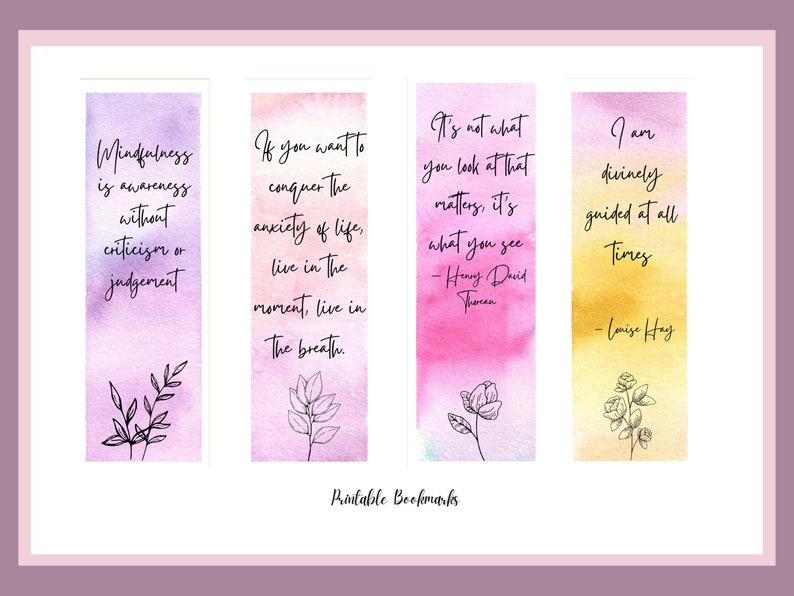 Mindfulness
is awareness
without
criticism or
judgement
If you want to
conquer the
anxiety of life,
live in the
moment, live in
the breath.
It's not what
you look at that
matters, it's
what you see
– Henry David
Thoreau
I am
divinely
guided at all
times
– Louise Hay
Printable Bookmarks